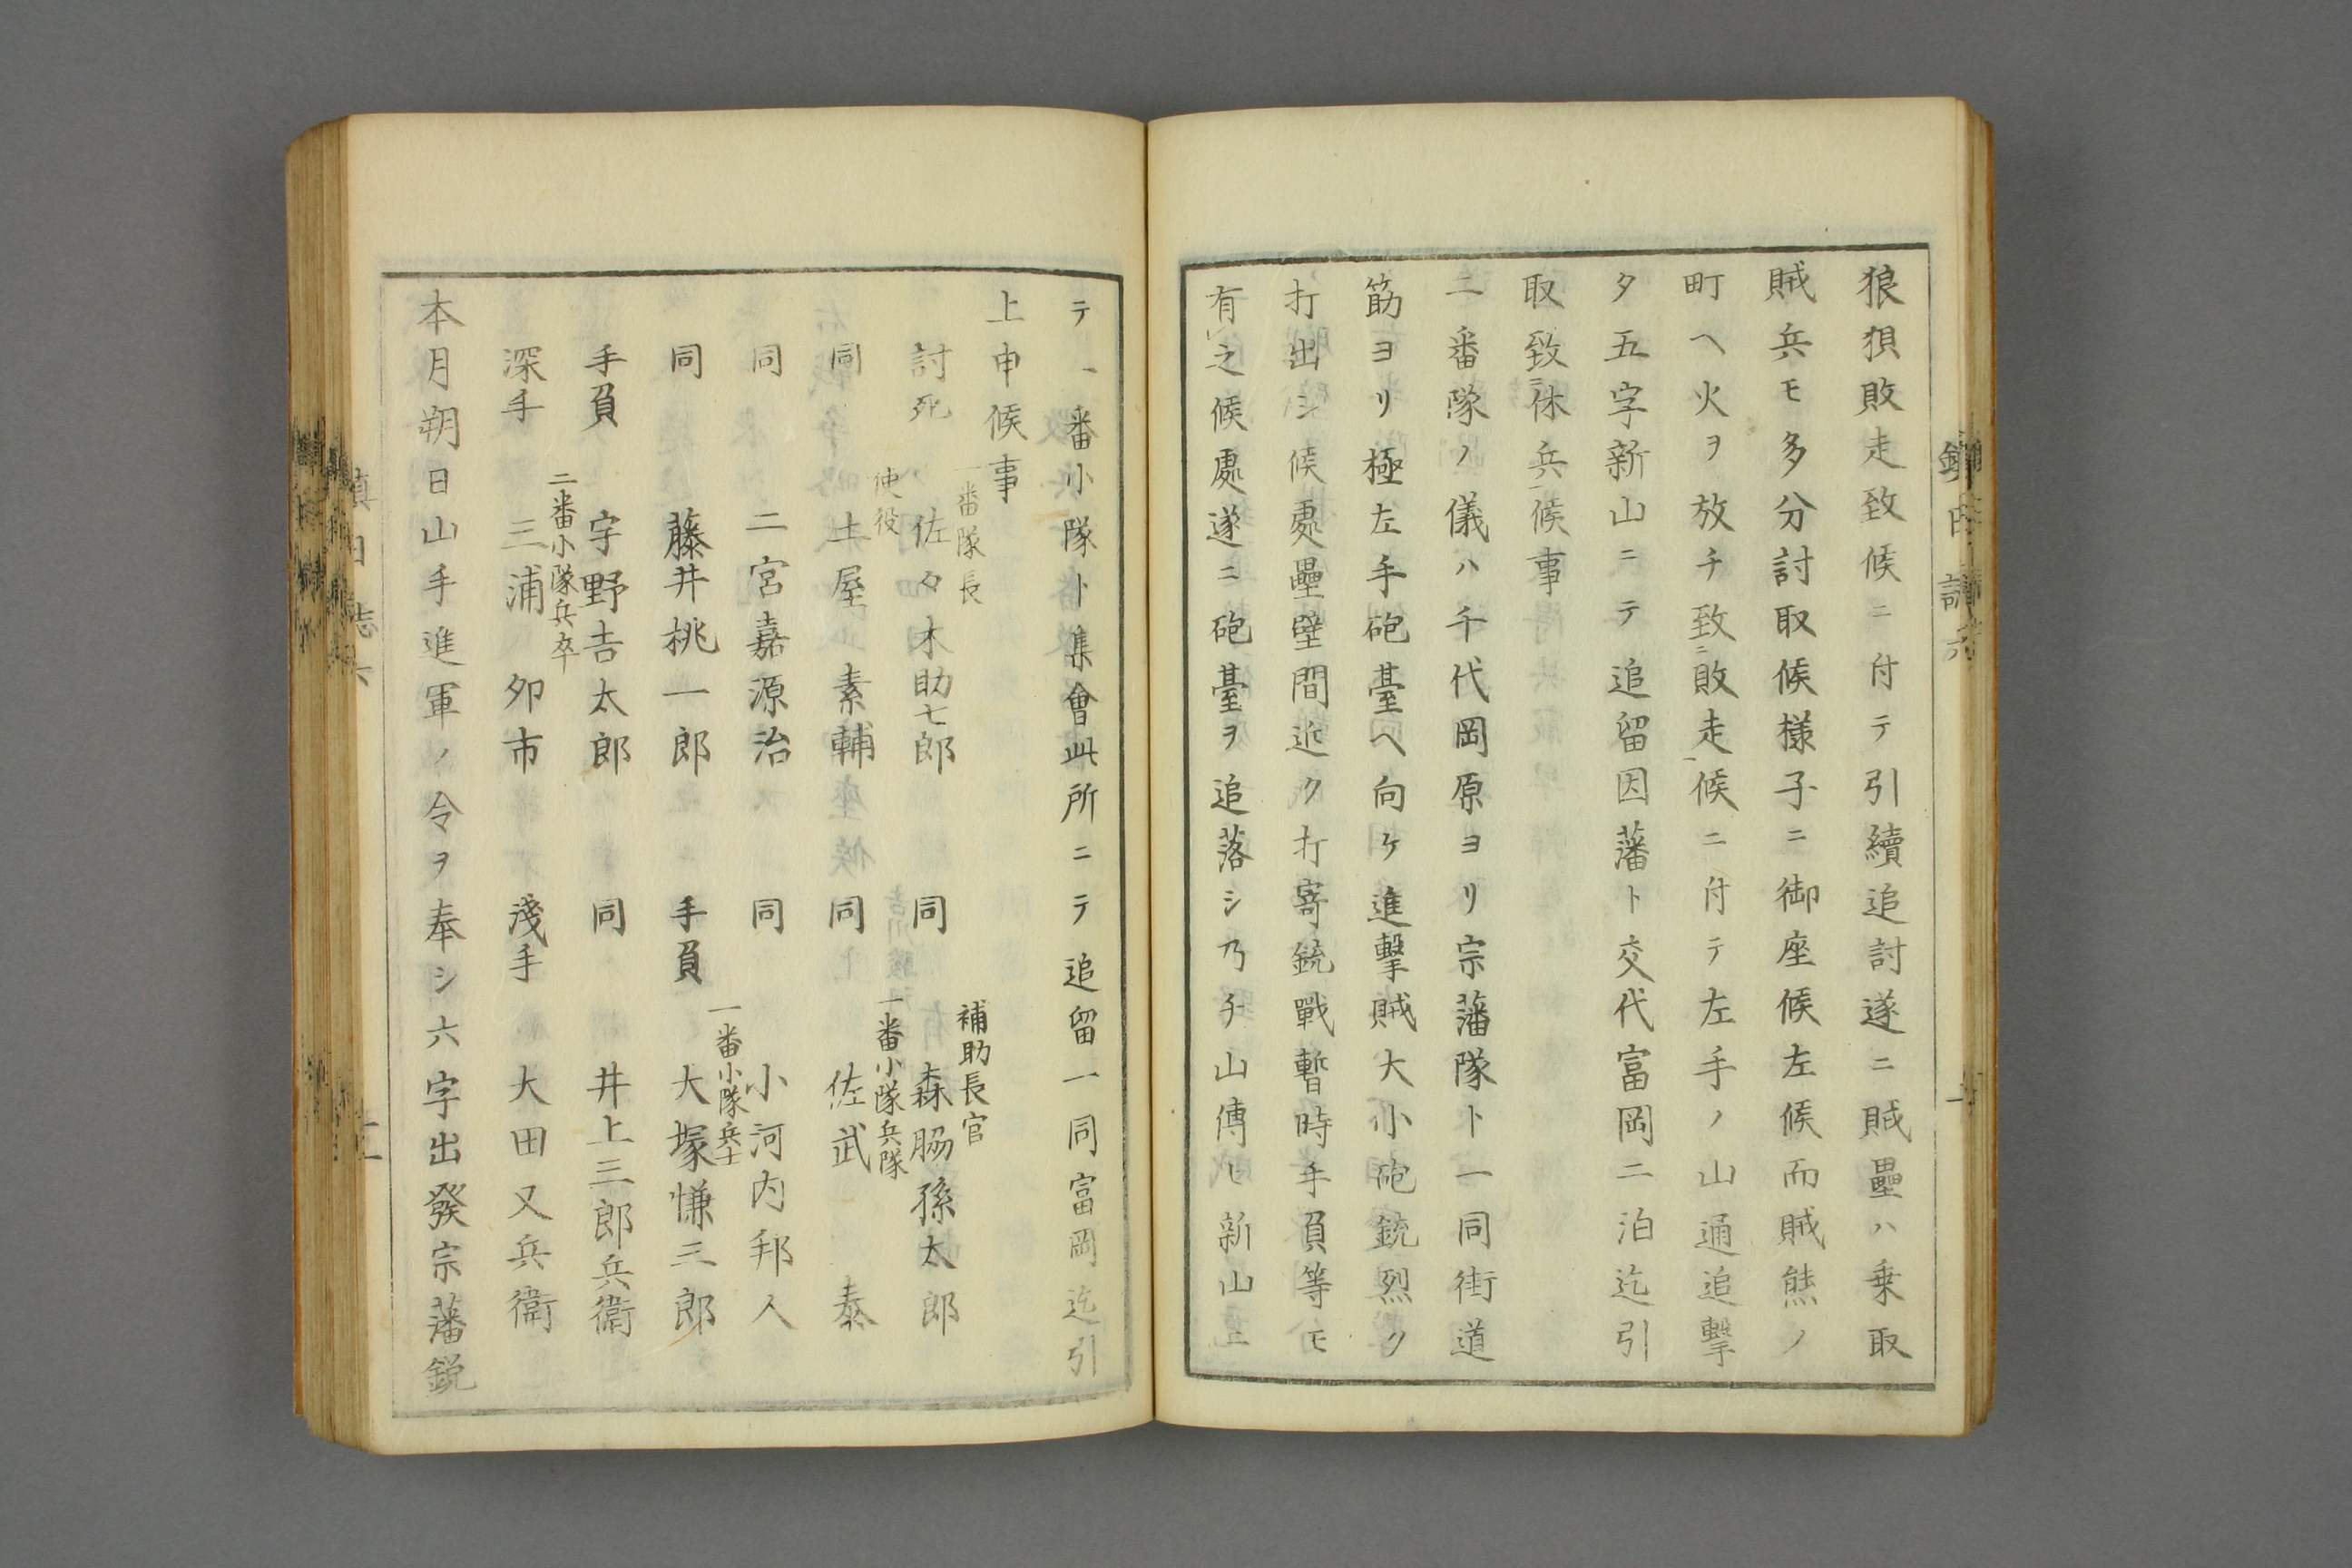 狼狽敗走致候ニ付テ引續追討遂ニ賊壘ハ乗取
賊兵モ多分討取候様子ニ御座候左候而賊熊ノ
町ヘ火ヲ放チ致ニ敗走一候ニ付テ左手ノ山通追撃
夕五字新山ニテ追留因藩ト交代富岡二泊迄引
取致ニ休兵一候事
二番隊ノ儀ハ千代岡原ヨリ宗藩隊ト一同街道
筋ヨリ極左手砲臺ヘ向ケ進撃賊大小砲銃烈ク
打出シ候處壘壁間近ク打寄銃戰暫時手負等モ
有レ之候處遂ニ砲臺ヲ追落シ乃チ山傳ヒ新山ニ
テ一番小隊ト集會此所ニテ追留一同富岡迄引
上申候事
討死 一番隊長 佐々木助七郎 同 補助長官 森脇孫太郎
同 使役 土屋素輔 同 一番小隊兵隊 佐武 泰
同 二宮嘉源治 同 小河内邦人
同 藤井桃一郎 手負 一番小隊兵士 大塚慊三郎
手負 宇野吉太郎 同 井上三郎兵衞
深手 二番小隊兵卒 三浦 夘市 淺手 大田又兵衞
本月朔日山手進軍ノ令ヲ奉シ六字出發宗藩鋭
日誌六